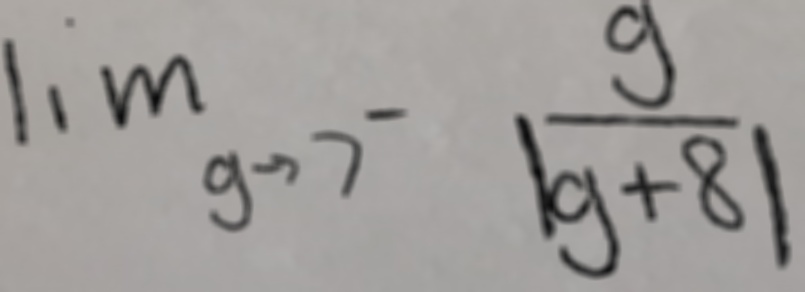 lim g→7⁻ g/|g+8|